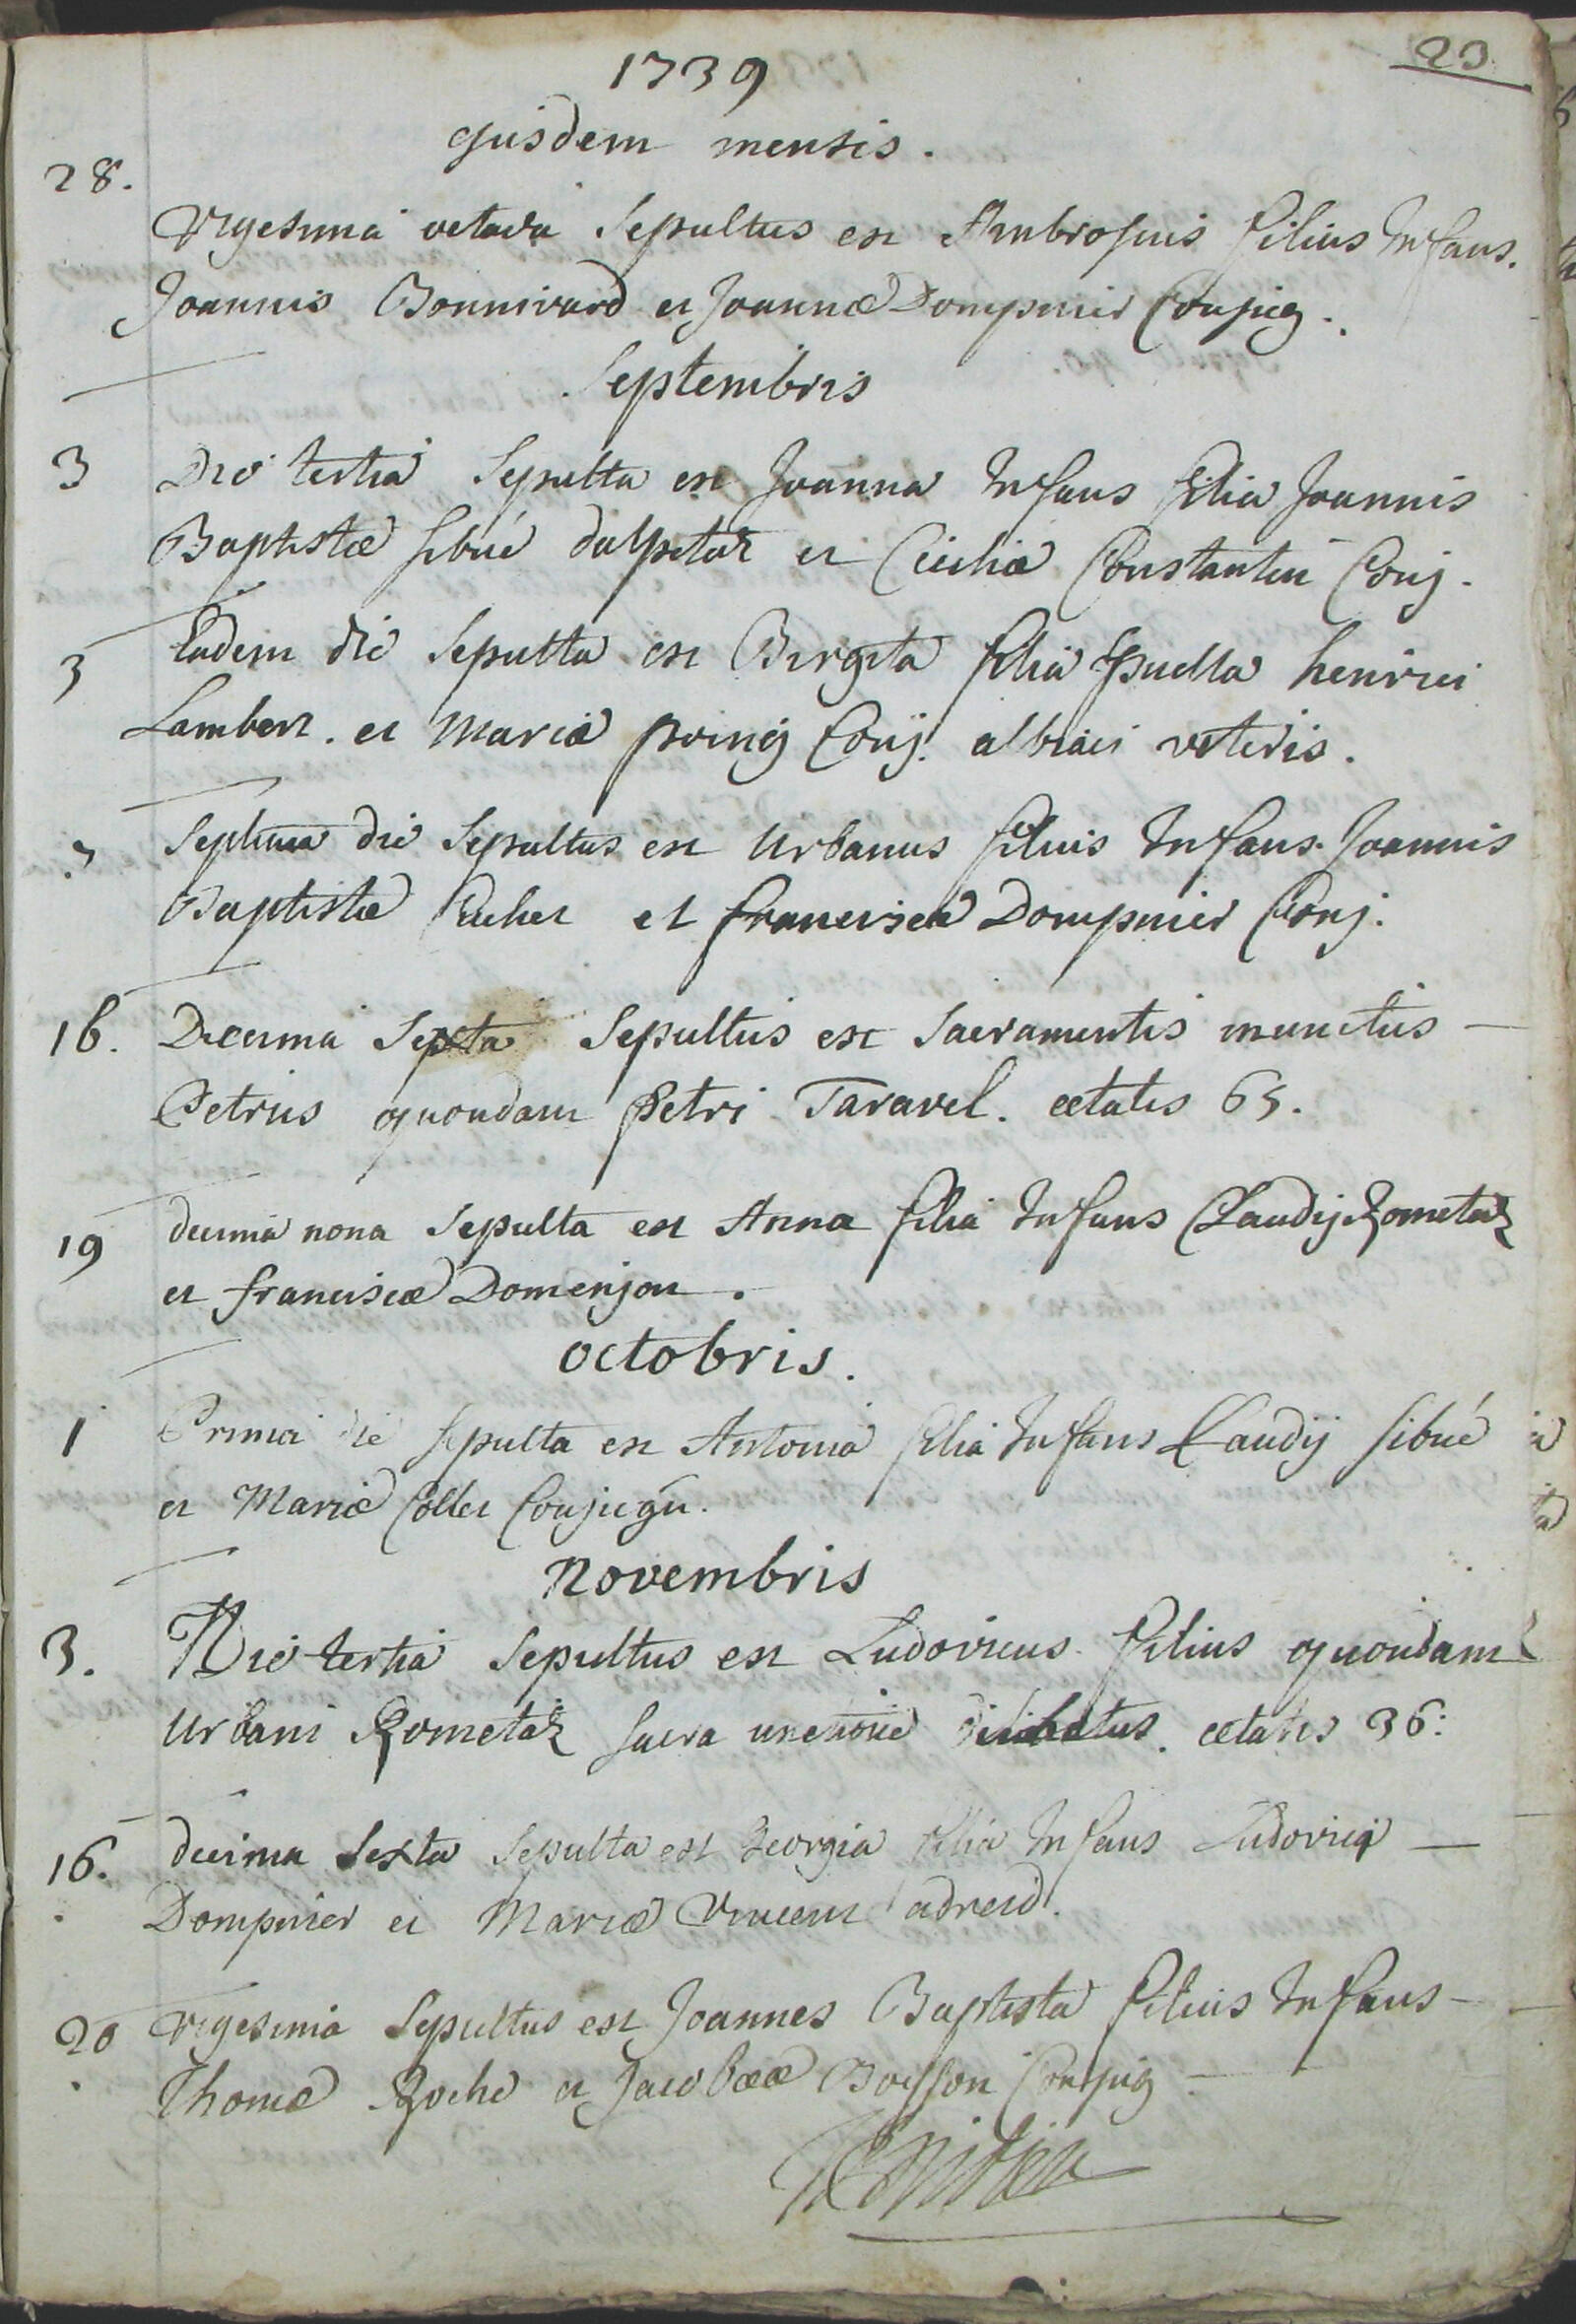 1739
23
ejusdem mensis.
28.
Vigesima octava Sepultus est Ambrosius filius Infans.
Joannis Bonnivard et Joannæ Dompnier Conjug.
Septembris
3 Die tertia Sepulta est Joanna Infans filia Joannis
Baptistæ sibué dalpetaz et Ceciliæ Constantin Conj.
3 Eadem die Sepulta est Birgita filia puella henrici
Lambert. et Mariæ Conj. albiaci veteris.
7 Septima die Sepultus est Urbanus filius Infans Joannis
Baptistæ Cuchet et franciscæ Dompnier Conj.
16. Decima Sexta Sepultus est Sacramentis munitus
Petrus quondam Petri Taravel. ætatis 65.
19 decima nona Sepulta est Anna filia Infans Claudij Rometaz
et franciscæ Domenjon.
octobris.
1 Prima die sepulta est Antonia filia Infans Claudij sibué
et Mariæ Collet Conjugu.
Novembris
3. Die tertia Sepultus est Ludovicus filius quondam
Urbani Rometaz sacra unctione delibutus. ætatis 36:
16. decima Sexta Sepulta est Georgia filia Infans Ludovici
Dompnier et Mariæ Vincent
20 Vigesima Sepultus est Joannes Baptista filius Infans
Thomæ Roche et Jacobææ Boisson Conjug